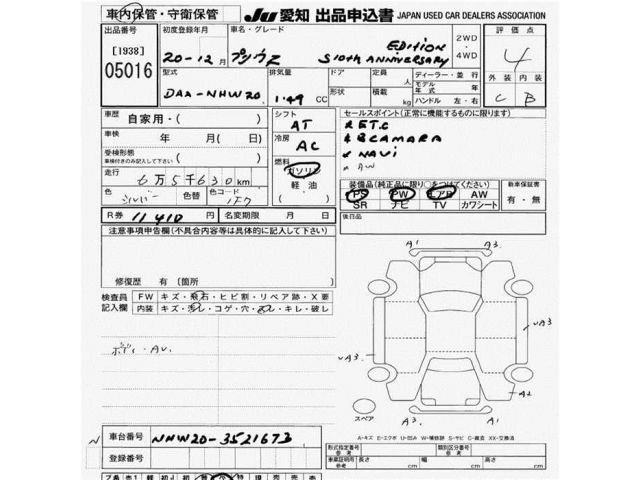 車内保管・守衛保管 JU 愛知 出品申込書 JAPAN USED CAR DEALERS ASSOCIATION
出品番号 初度登録年月 車名・グレード 2WD・4WD 評価点
[1938] 20-12月 プリウス EDITION S 10th ANNIVERSARY 4
05016
型式 排気量 ドア 定員 人 ディーラー・並行 外装 内装
DAA-NHW20 1.49 CC 形状 積載 kg モデル年式 年 ハンドル 左・右 C B
車歴 自家用・( ) シフト AT セールスポイント(正常に機能するものに限ります)
車検 年 月( 日) 冷房 AC ETC
受検形態 車検付きのみ記入して下さい ( ) B CAMARA
走行 6万5千630km 燃料 ガソリン 軽油 ( ) NAVI
AW
色 シルバー 色替 色コード 1F7
装備品(純正品に限り○をつけてください) 新車保証書
PS PW エアB AW 有・無
SR ナビ TV カワシート
R券 11410 円 名変期限 月 日 後日品
注意事項申告欄(不具合内容等は具体的に記入して下さい)
修復歴 有(箇所
A1 A3
検査員記入欄 FW キズ・飛石・ヒビ割・リペア跡・X要
内装 キズ・汚レ・コゲ・穴・スレ・キレ・破レ
A3
ボディーAu.
A3
A2
スペア A3 A1
A-キズ E-エクボ U-凹み W-補修跡 S-サビ C-腐食 XX-交換済
車台番号 NHW20-3521673
登録番号
形式指定番号 参考 類別区分番号 参考
車庫証明用 参考 長さ cm 幅 cm 高さ cm